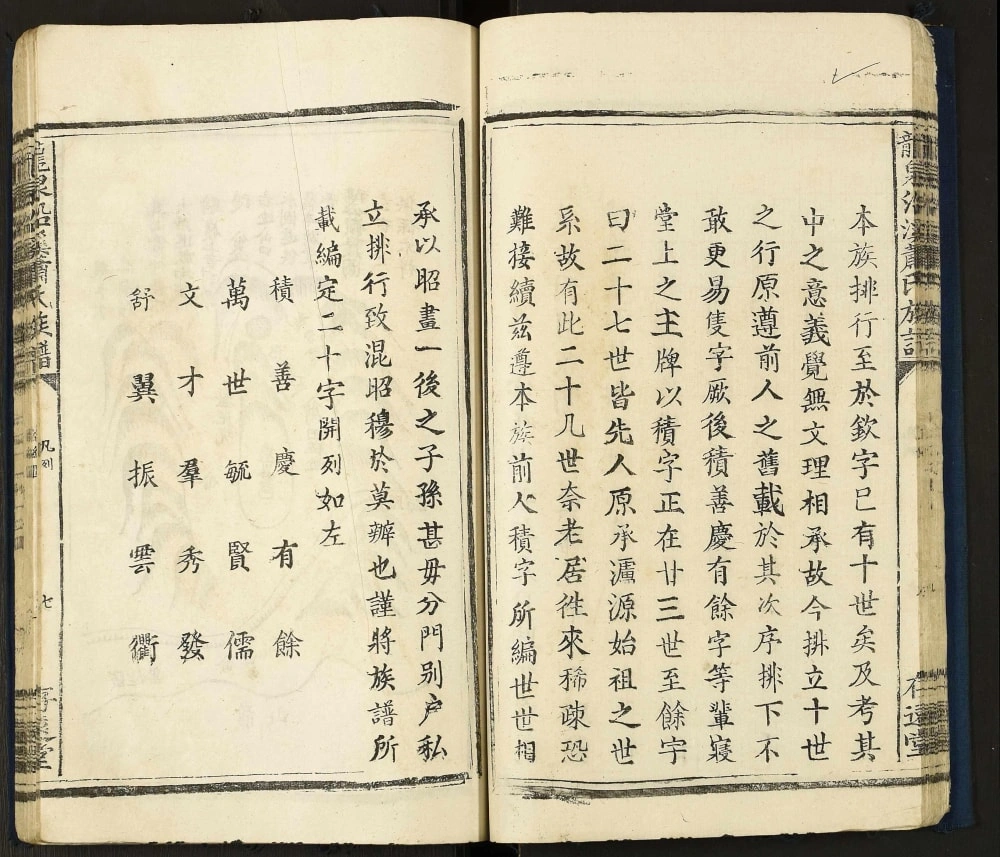 本族排行至於欽字已有十世矣及考其
中之意義覺無文理相承故今排立十世
之行原遵前人之舊載於其次序排下不
敢更易隻字厥後積善慶有餘字等輩寢
堂上之主牌以積字正在廿三世至餘字
曰二十七世皆先人原承瀘源始祖之世
系故有此二十几世奈老居徃來稀疎恐
難接續兹遵本族前人積字所編世世相
承以昭畫一後之子孫甚毋分門别户私
立排行致混昭穆於莫辧也謹將族譜所
載編定二十字開列如左
積善慶有餘
萬世毓賢儒
文才羣秀發
舒翼振雲衢
龍泉沿溪蕭氏族譜
凡例
七